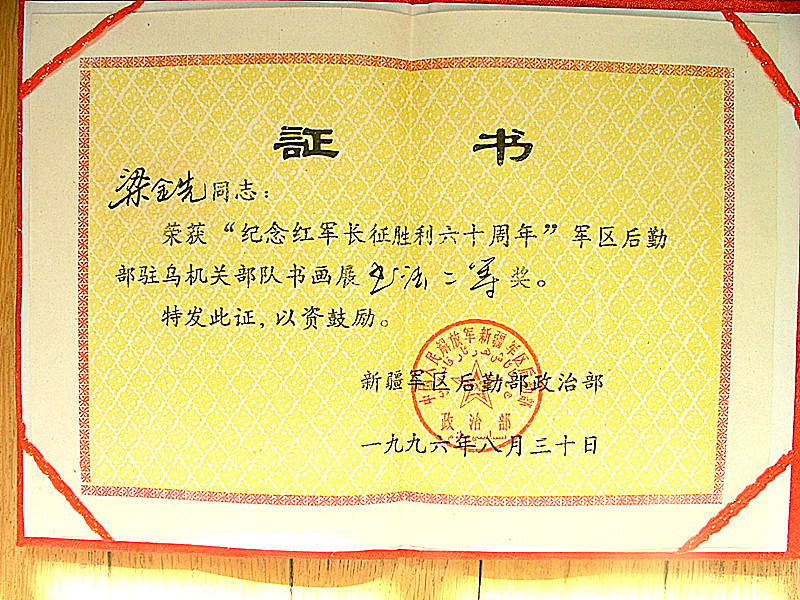 証书
梁金先同志：
荣获“纪念红军长征胜利六十周年”军区后勤
部驻乌机关部队书画展书法二等奖。
特发此证，以资鼓励。
中国人民解放军新疆军区后勤部
新疆军区后勤部政治部
政治部
一九九六年八月三十日